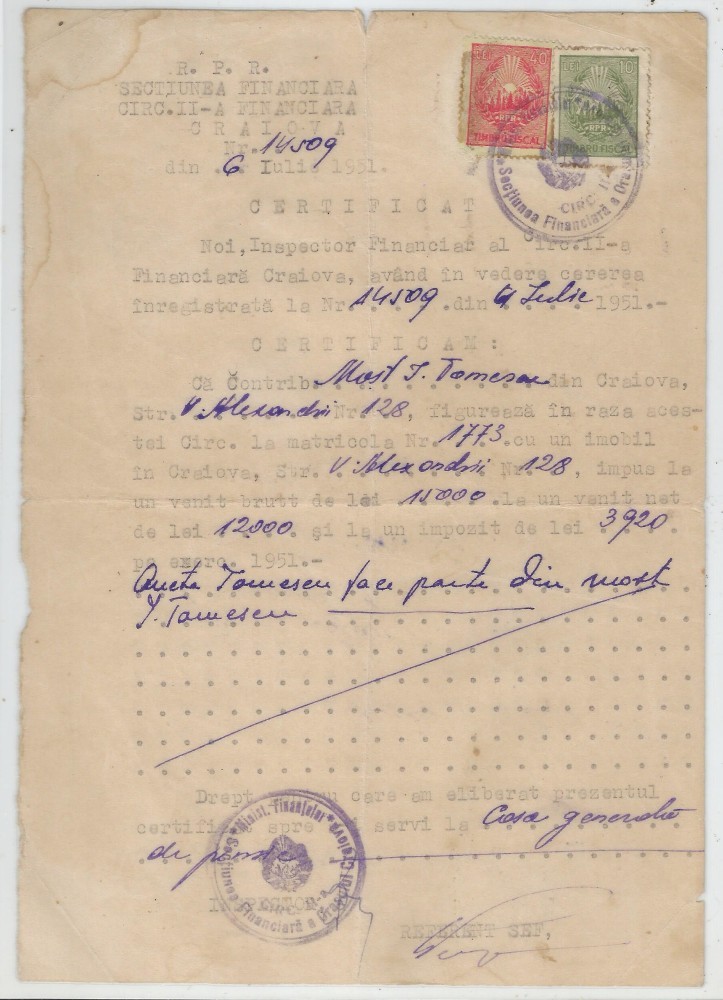 R. P. R.
SECȚIUNEA FINANCIARA
CIRC.II-A FINANCIARA
C R A I O V A
Nr. 14509
din 6 Iulie 1951.
LEI 40
RPR
TIMBRU FISCAL
LEI 10
RPR
TIMBRU FISCAL
CIRC. II
Secțiunea Financiară a Oraș
C E R T I F I C A T
Noi,Inspector Financiar al Circ.II-a
Financiară Craiova, având în vedere cererea
înregistrată la Nr. 14509 .din 6 Iulie 1951.-
C E R T I F I C A M :
Că Contrib. Moșt I. Tomescu din Craiova,
Str. V. Alexandrii Nr. 128, figurează în raza aces-
tei Circ. la matricola Nr. 1773.cu un imobil
în Craiova, Str. V. Alexandrii Nr. 128, impus la
un venit brutt de lei 15000 .la un venit net
de lei 12000 și la un impozit de lei 3920
pe exerc. 1951.-
Aneta Tomescu face parte din moșt
I. Tomescu
Drept pentru care am eliberat prezentul
certificat spre a servi la Casa generală
de pensii
Minist. Finanțelor
Secțiunea Financiară a Orașului Craiova
CIRC. II-a
INSPECTOR
REFERENT SEF,